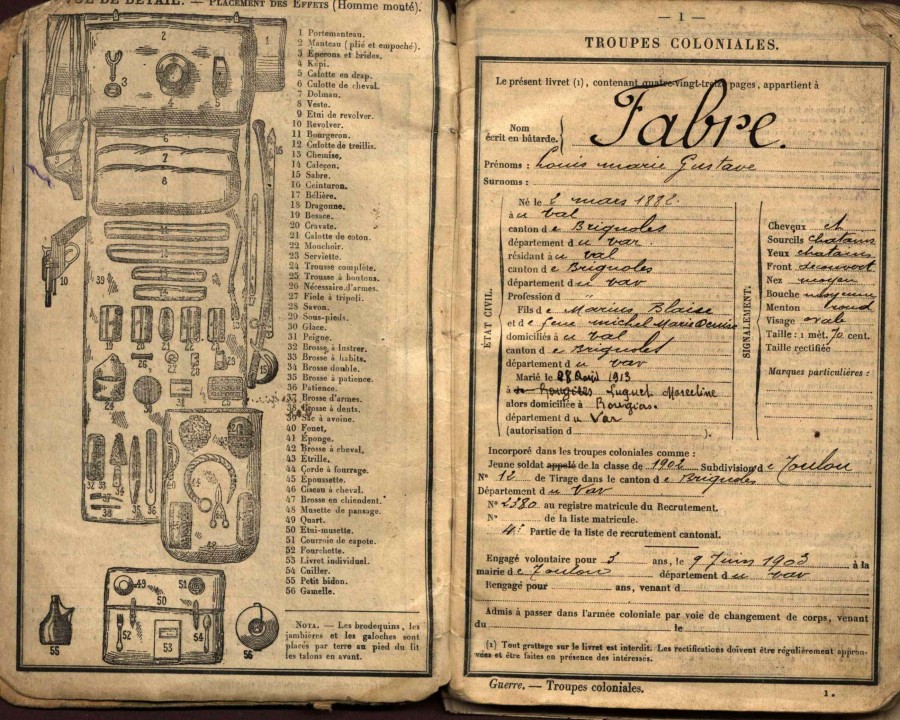 VUE DE DÉTAIL. — PLACEMENT DES EFFETS (Homme monté).
1 Portemanteau.
2 Manteau (plié et empoché).
3 Éperons et brides.
4 Képi.
5 Calotte en drap.
6 Culotte de cheval.
7 Dolman.
8 Veste.
9 Etui de revolver.
10 Revolver.
11 Bourgeron.
12 Culotte de treillis.
13 Chemise.
14 Caleçon.
15 Sabre.
16 Ceinturon.
17 Bélière.
18 Dragonne.
19 Besace.
20 Cravate.
21 Calotte de coton.
22 Mouchoir.
23 Serviette.
24 Trousse complète.
25 Trousse à boutons.
26 Nécessaire d'armes.
27 Fiole à tripoli.
28 Savon.
29 Sous-pieds.
30 Glace.
31 Peigne.
32 Brosse à lustrer.
33 Brosse à habits.
34 Brosse double.
35 Brosse à patience.
36 Patience.
37 Brosse d'armes.
38 Brosse à dents.
39 Sac à avoine.
40 Fouet.
41 Éponge.
42 Brosse à cheval.
43 Étrille.
44 Corde à fourrage.
45 Époussette.
46 Ciseau à cheval.
47 Brosse en chiendent.
48 Musette de pansage.
49 Quart.
50 Etui-musette.
51 Courroie de capote.
52 Fourchette.
53 Livret individuel.
54 Cuiller.
55 Petit bidon.
56 Gamelle.
NOTA. — Les brodequins, les
jambières et les galoches sont
placés par terre au pied du lit
les talons en avant.
— 1 —
TROUPES COLONIALES.
Le présent livret (1), contenant quatre-vingt-treize pages, appartient à
Nom
écrit en bâtarde. Fabre.
Prénoms : Louis marie Gustave
Surnoms :
ÉTAT CIVIL.
Né le 2 mars 1882
à u Val
canton d e Brignoles
département d u var.
résidant à u val
canton d e Brignoles
département d u var
Profession d
Fils d e Marius Blaise
et d e michel Marie
domiciliés à u val
canton d e Brignoles
département d u var
Marié le 28 1913
à Luquet Marceline
alors domiciliée à Rougiers.
département d u Var
(autorisation d ).
SIGNALEMENT.
Cheveux et
Sourcils chatains
Yeux chatains
Front découvert
Nez moyen
Bouche moyenne
Menton rond
Visage ovale
Taille : 1 mèt. 70 cent.
Taille rectifiée
Marques particulières :
Incorporé dans les troupes coloniales comme :
Jeune soldat appelé de la classe de 1902 Subdivision d e Toulon
N° 12 de Tirage dans le canton d e Brignoles
Département d u Var
N° 2380 au registre matricule du Recrutement.
N° de la liste matricule.
4e Partie de la liste de recrutement cantonal.
Engagé volontaire pour 3 ans, le 9 Juin 1903 à la
mairie d e Toulon département d u var
Rengagé pour ans, venant d
Admis à passer dans l'armée coloniale par voie de changement de corps, venant
du le
(1) Tout grattage sur le livret est interdit. Les rectifications doivent être régulièrement approu-
vées et être faites en présence des intéressés.
Guerre. — Troupes coloniales.
1.